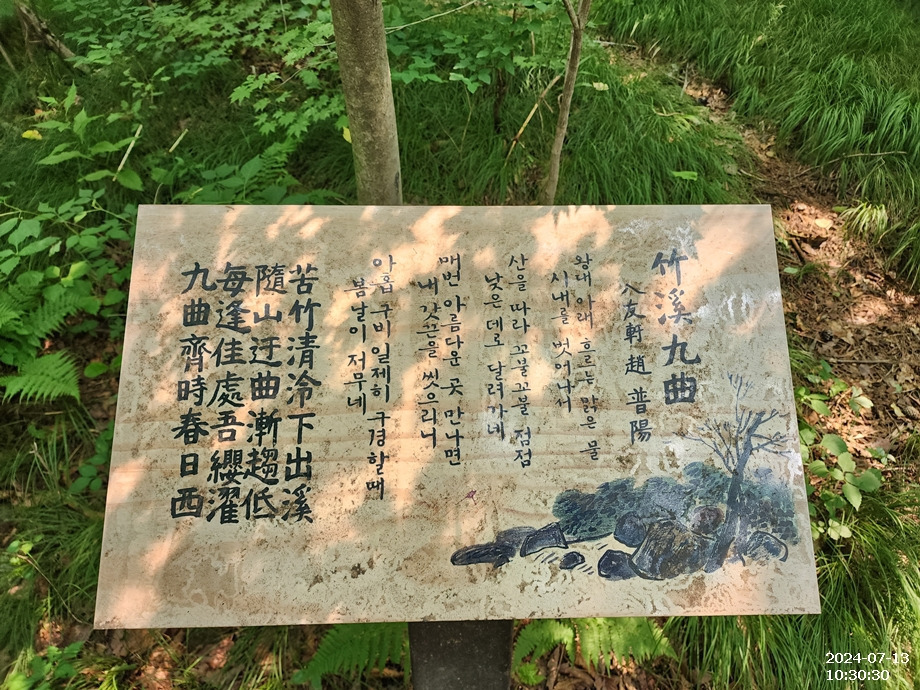 竹溪九曲
八友軒 趙 普陽
왕대 아래 흐르는 맑은 물
시내를 벗어나서
산을 따라 꼬불꼬불 점점
낮은데로 달려가네
매번 아름다운 곳 만나면
내 갓끈을 씻으리니
아홉 구비 일제히 구경할때
봄 날이 저무네
苦竹清冷下出溪
隨山迂曲漸趨低
每逢佳處吾纓濯
九曲齊時春日西
2024-07-13
10:30:30